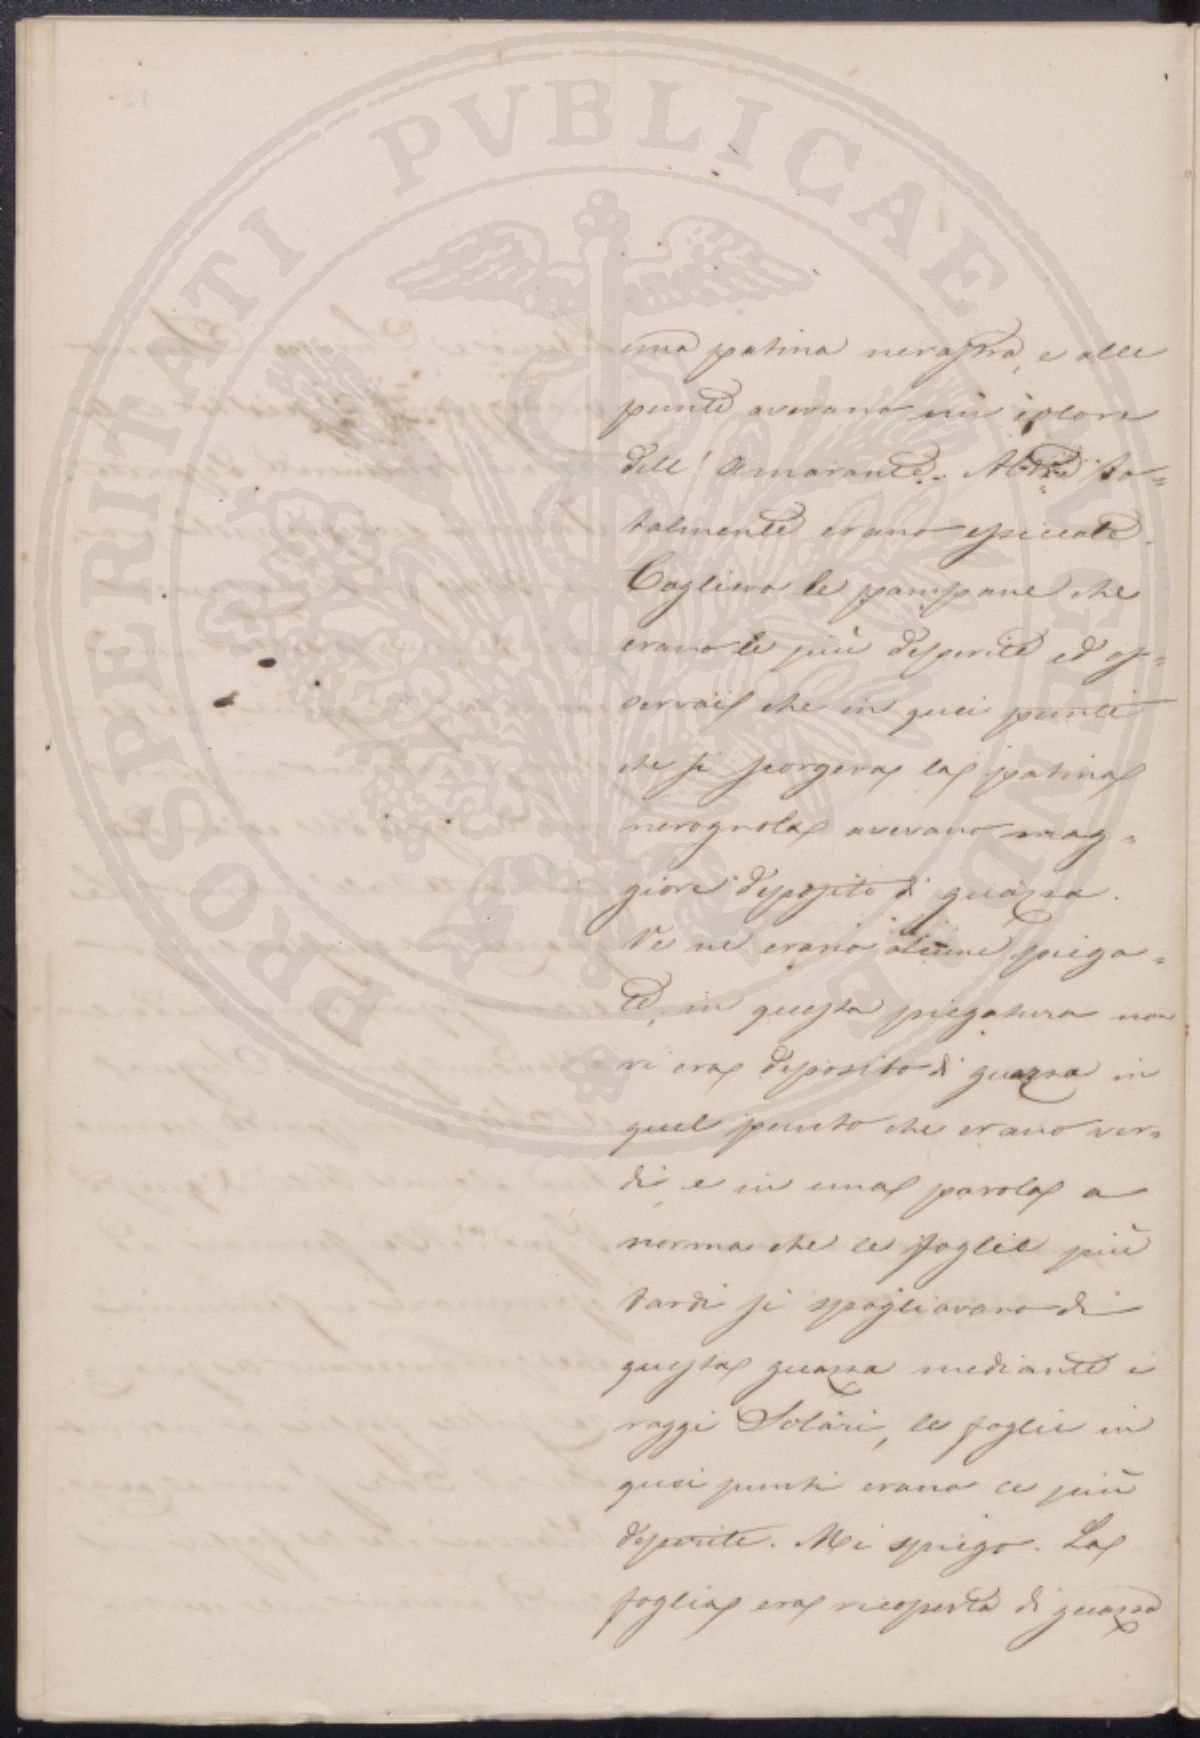 PROSPERITATI PVBLICAE AVGENDAE
una patina nerastra, e alle
punte avevano un colore
dell' Amarante. Altre to=
talmente erano essiccate.
Coglievo le pampane che
erano le più deperite ed os=
servai che in quei punti
che si scorgeva la patina
nerognola avevano mag=
giore deposito di guazza.
Ve ne erano alcune piega=
te, in questa piegatura non
vi era deposito di guazza in
quel punto che erano ver=
di, e in una parola a
norma che le foglie più
tardi si spogliavano di
questa guazza mediante i
raggi Solari, le foglie in
quei punti erano le più
deperite. Mi spiego. La
foglia era ricoperta di guazza